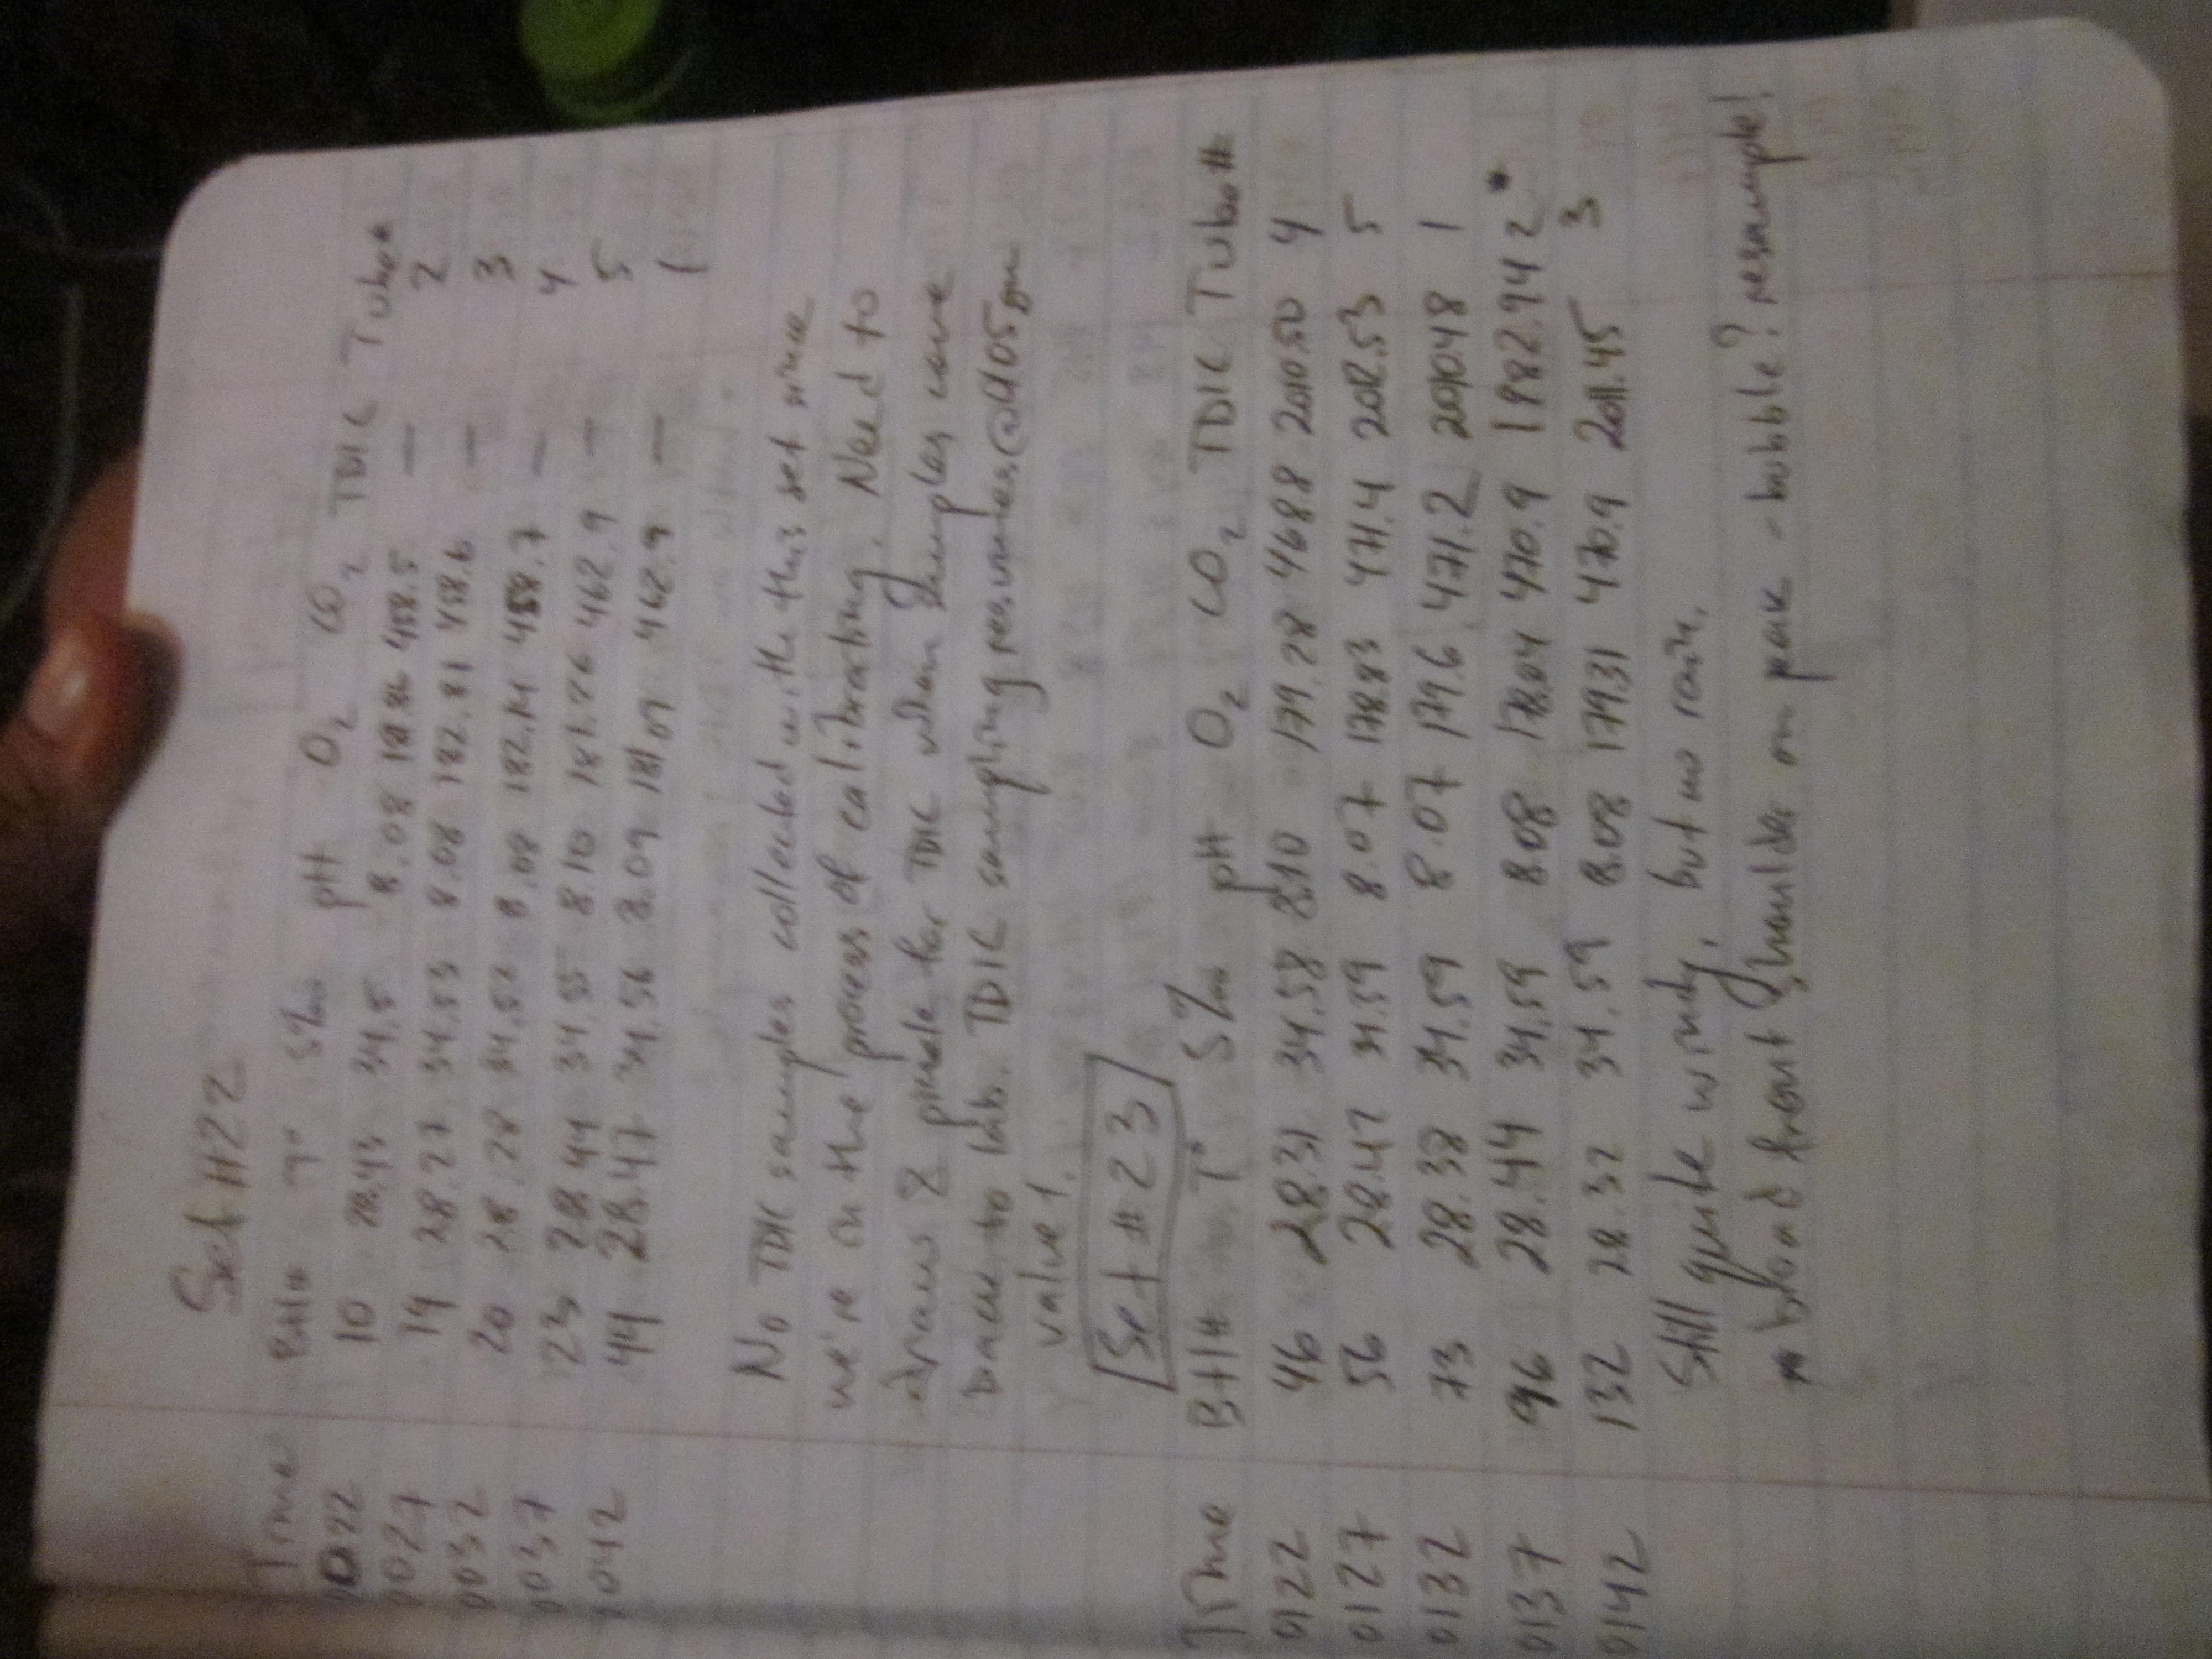 Set #22
Time Bttl# T° S‰ pH O2 CO2 TDIC Tube#
0022 10 28.43 34.5 8.08 458.5 — 2
0027 19 28.27 34.53 8.08 182.81 458.6 — 3
0032 20 28.28 34.52 8.08 182.14 458.7 — 4
0037 23 28.44 34.55 8.10 181.76 462.9 — 5
0042 44 28.47 34.56 8.09 181.09 462.9 — 1
No TDIC samples collected with this set since
we're in the process of calibrating. Need to
draw & pickle for TDIC when samples come
back to lab. TDIC sampling resumes @ 0105 on
valve 1.
Set #23
Time Bttl# T° S‰ pH O2 CO2 TDIC Tube#
0122 46 28.31 34.58 8.10 179.28 468.8 2010.50 4
0127 56 28.42 34.59 8.07 178.83 471.4 2012.53 5
0132 73 28.38 34.59 8.07 179.6 471.2 2010.48 1
0137 96 28.44 34.59 8.08 178.04 470.9 1982.94 2 *
0142 132 28.32 34.59 8.08 179.31 470.9 2011.45 3
Still quite windy, but no rain.
* broad front shoulder on peak - bubble? resample!